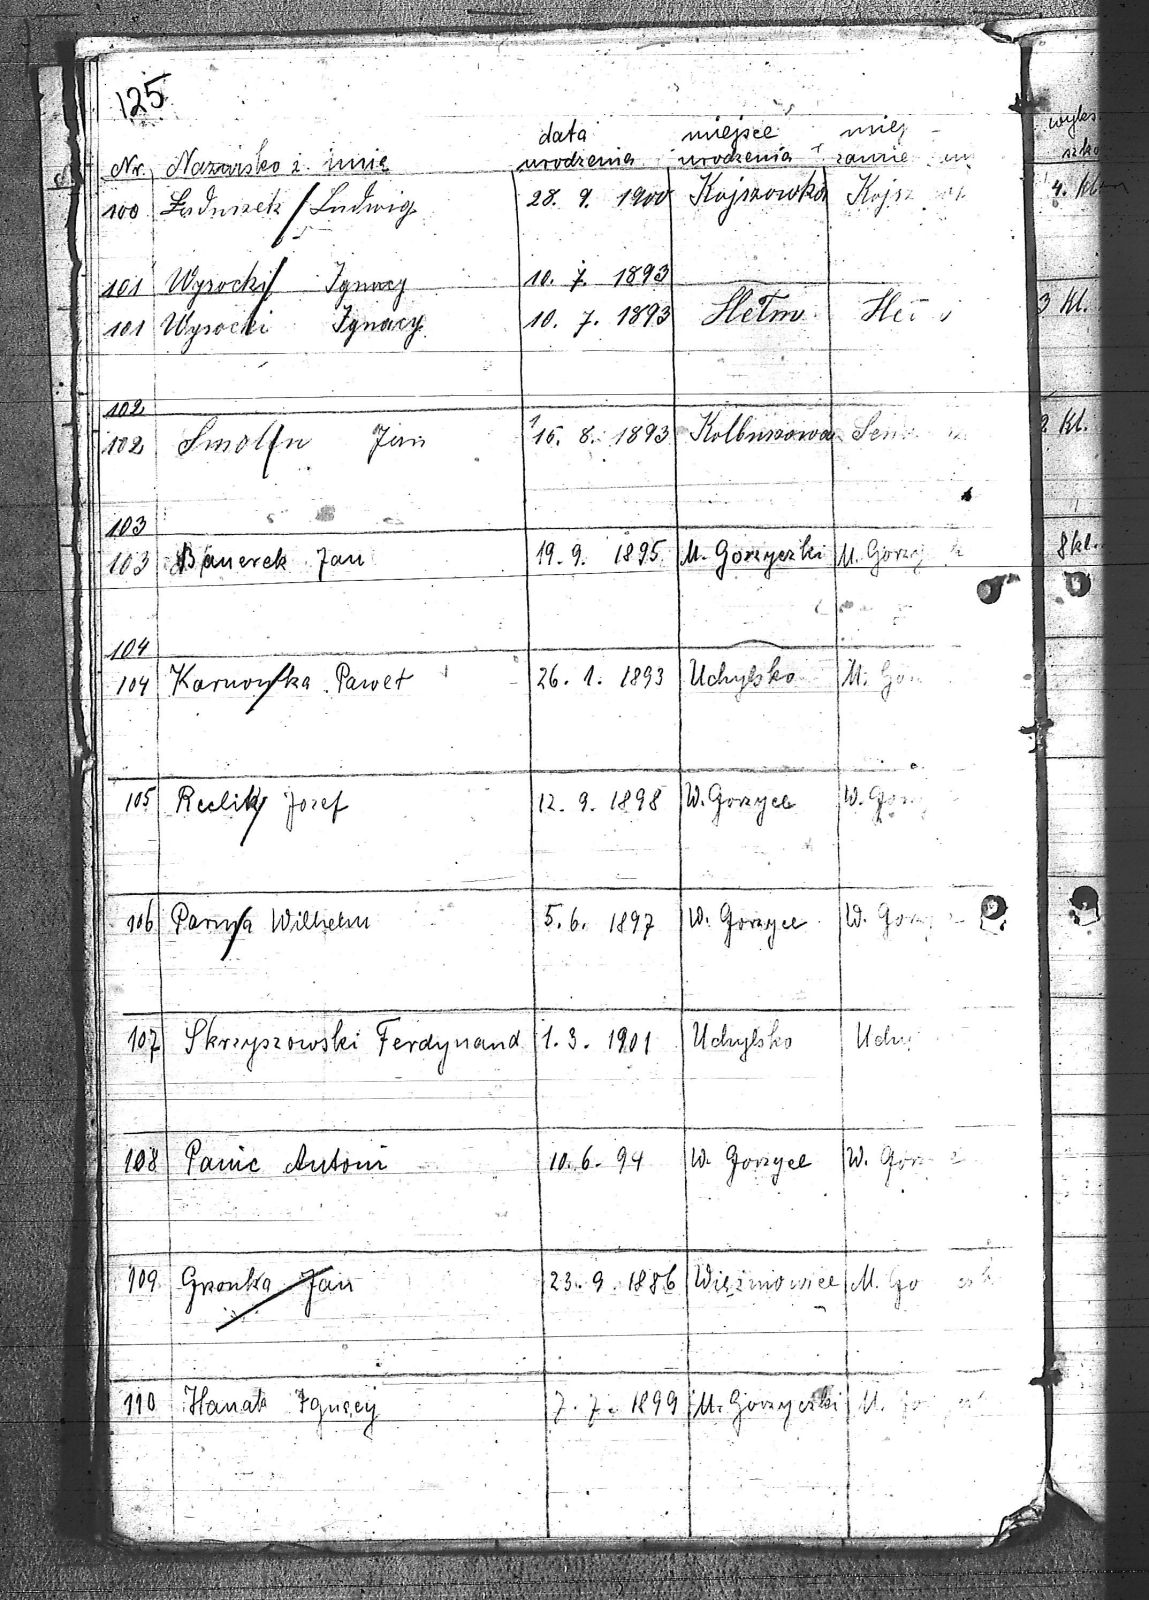 125
data miejsce miej
Nr. Nazwisko i imię urodzenia urodzenia zamie
wyks
szko
100 Ludwig 28. 9. 1900 Kojszowka Kojsz 4. kl.
101 Wysocki Ignacy 10. 7. 1893
101 Wysocki Ignacy 10. 7. 1893 3 kl.
102
102 Smolin Jan 15. 8. 1893 Kolbuszowa 2 kl.
103
103 Banerek Jan 19. 9. 1895 M. Gorzyczki M. Gorzy 8 kl.
104
104 Karnowka Paweł 26. 1. 1893 Uchylsko M. Gor
105 Jozef 12. 9. 1898 W. Gorzyce W. Gorzy
106 Parma Wilhelm 5. 6. 1897 W. Gorzyce W. Gorzy
107 Skrzyszowski Ferdynand 1. 3. 1901 Uchylsko Uchy
108 Panic Antoni 10. 6. 94 W. Gorzyce W. Gorz
109 Gronka Jan 23. 9. 1886 M. Go
110 Hanak Ignacy 7. 7. 1899 M. Gorzyczki M. Go